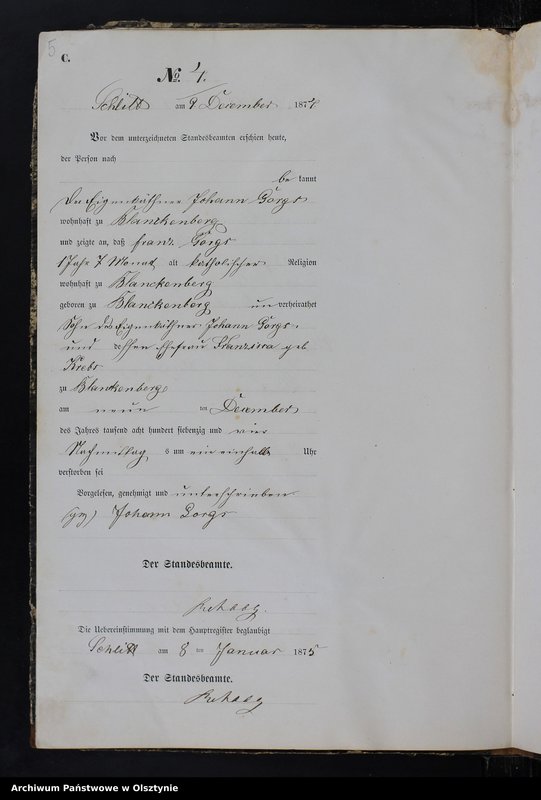 5
C.
No 4.
Schlitt am 9 December 1874
Vor dem unterzeichneten Standesbeamten erschien heute,
der Person nach
be kannt
der Eigenkäthner Johann Gorgs
wohnhaft zu Blanckenberg
und zeigte an, daß Franz Gorgs
1 Jahr 7 Monat alt katholischer Religion
wohnhaft zu Blanckenberg
geboren zu Blanckenberg un verheirathet
Sohn des Eigenkäthner Johann Gorgs
und dessen Ehefrau Franzisca geb
Krebs
zu Blankenberg
am neun ten December
des Jahres tausend acht hundert siebenzig und vier
Nachmittag s um ein einhalb Uhr
verstorben sei
Vorgelesen, genehmigt und unterschrieben
Johann Gorgs
Der Standesbeamte.
Die Uebereinstimmung mit dem Hauptregister beglaubigt
Schlitt am 8 ten Januar 1875
Der Standesbeamte.
Archiwum Państwowe w Olsztynie